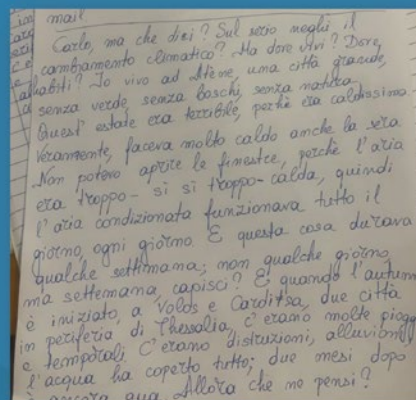 mail
Carlo, ma che dici? Sul serio neghi il
cambiamento climatico? Ma dove vivi? Dove
abiti? Io vivo ad Atene, una città grande,
senza verde, senza boschi, senza natura.
Quest' estate era terribile, perchè era caldissima.
Veramente, faceva molto caldo anche la sera
Non potevo aprire le finestre, perchè l'aria
era troppo - sì sì troppo - calda, quindi
l'aria condizionata funzionava tutto il
giorno, ogni giorno. E questa cosa durava
qualche settimana; non qualche giorno,
ma settemana, capisci? E quando l'autun
è iniziato, a Volos e Carditsa, due città
in periferia di Thessalia, c'erano molte piogg
e temporali. C'erano distruzioni, alluvioni
l'acqua ha coperto tutto; due mesi dopo
è ancora qua. Allora che ne pensi?